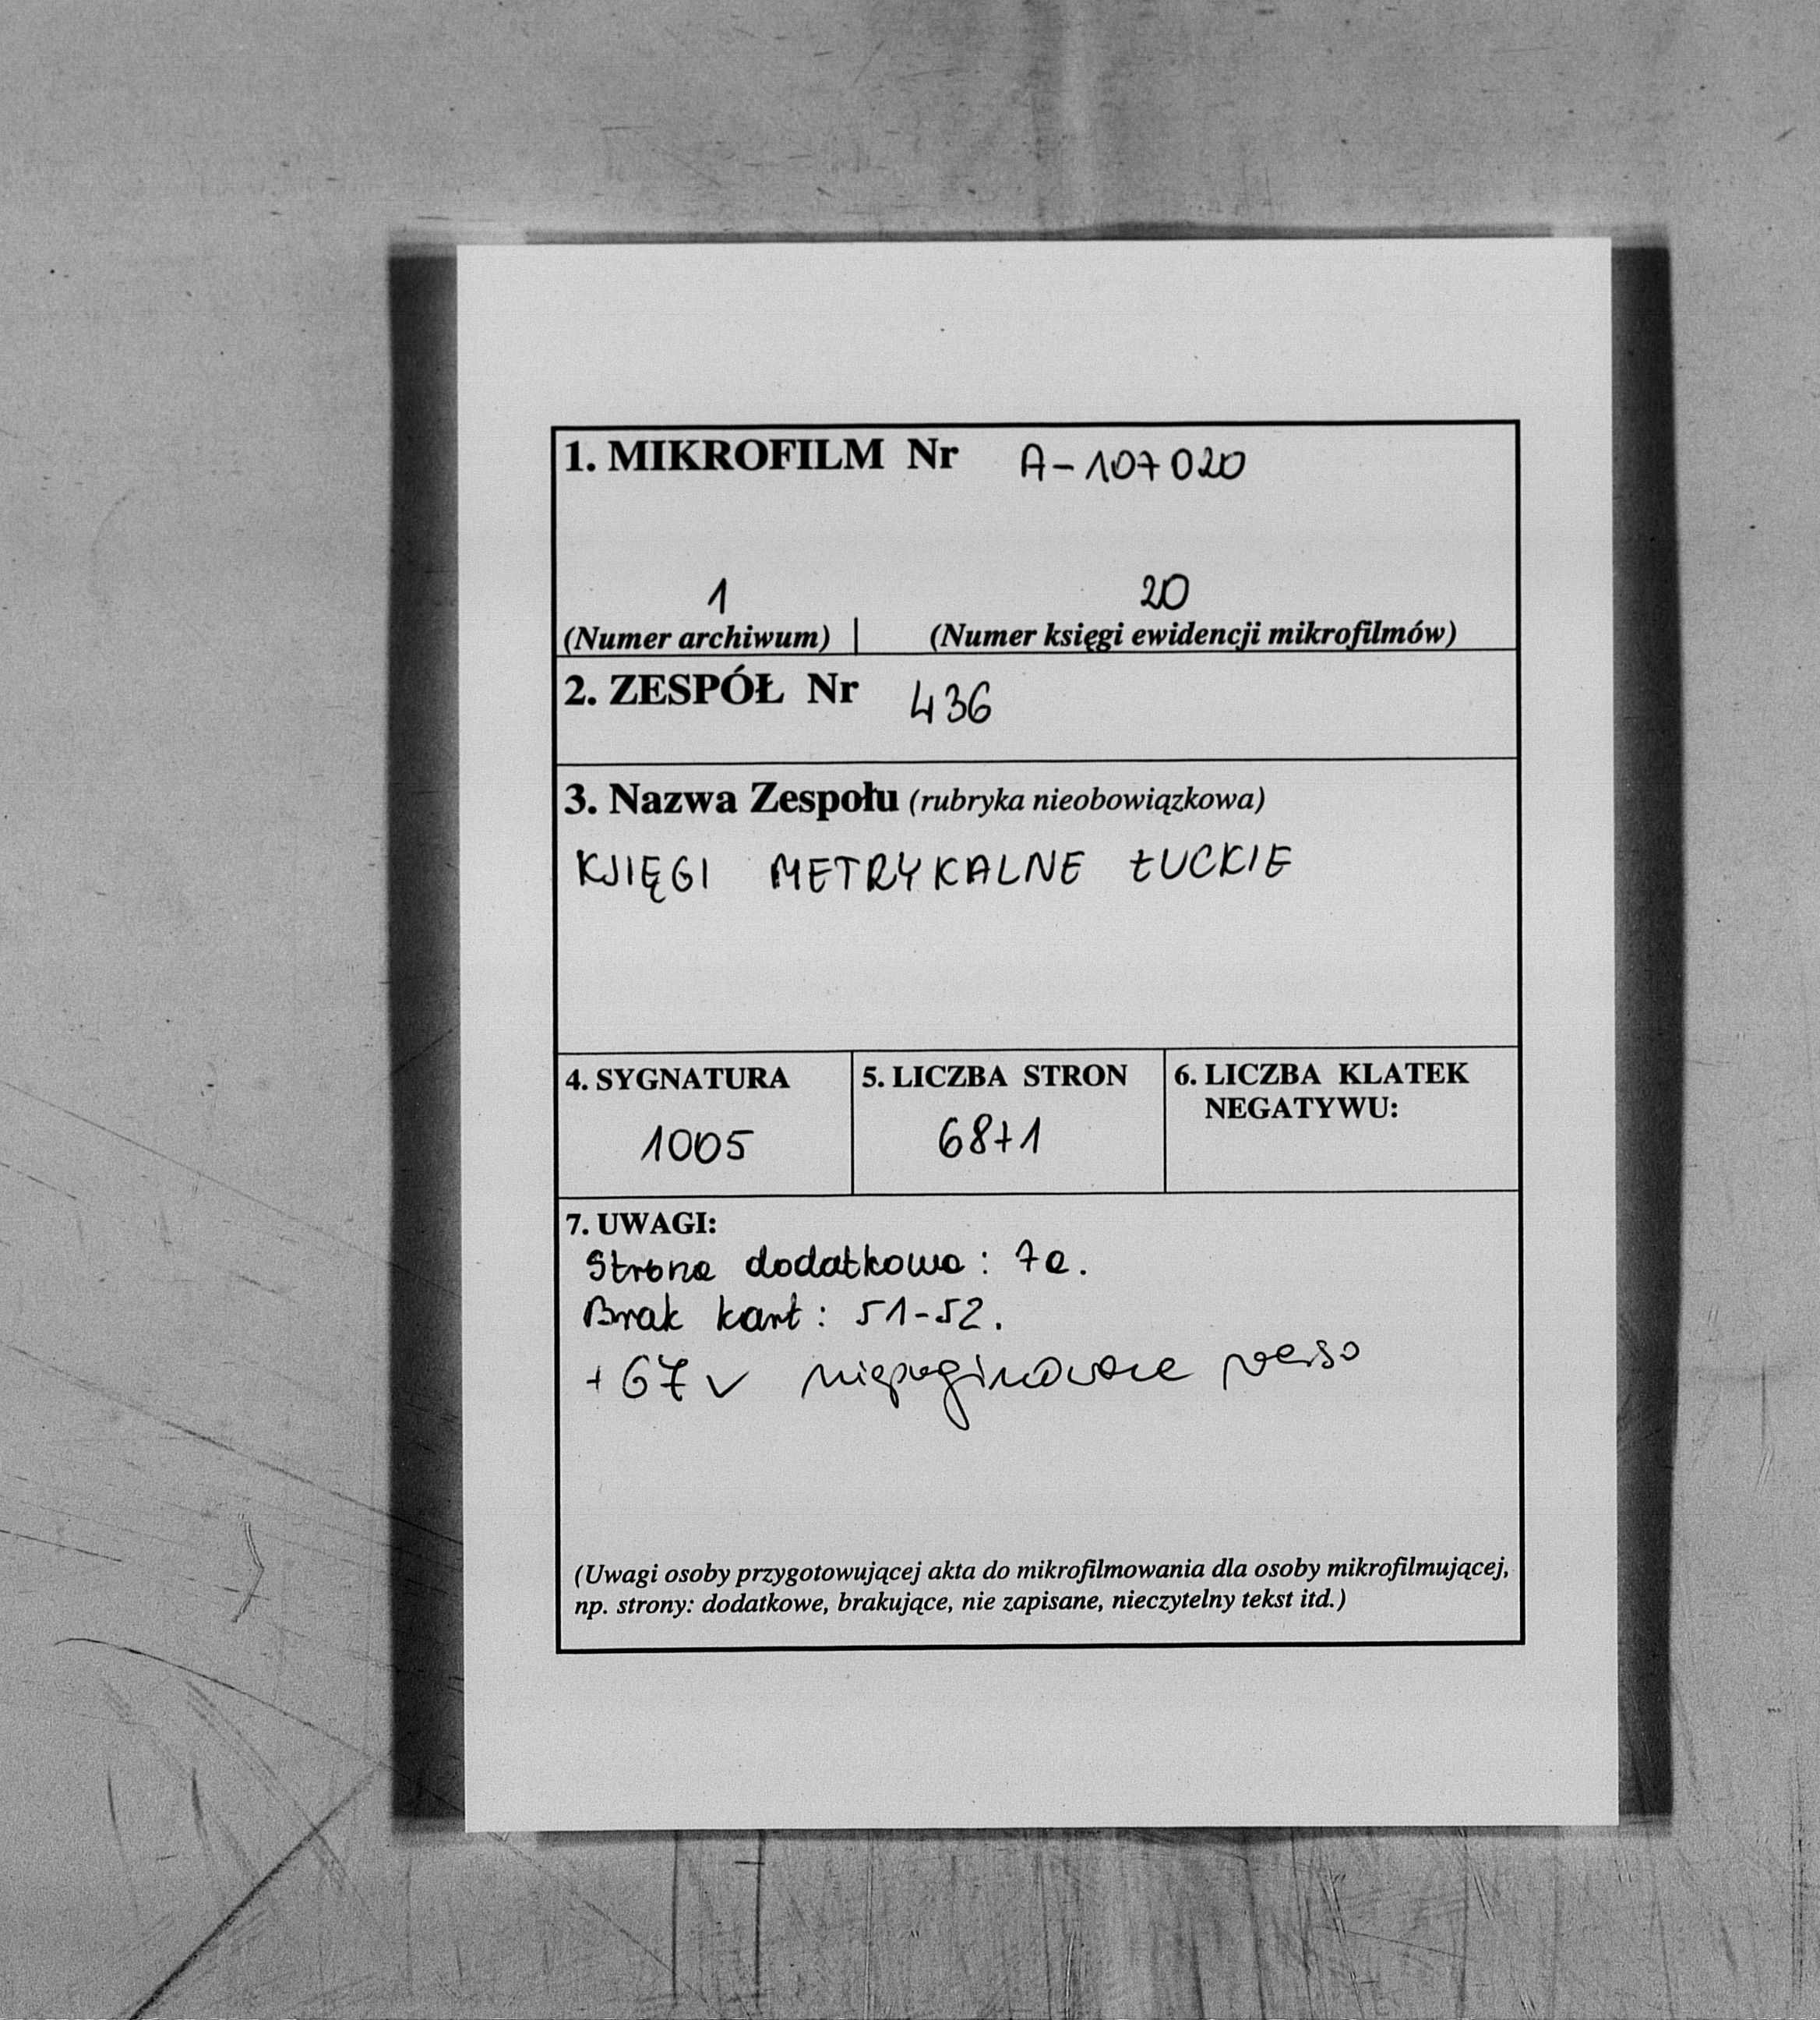 1. MIKROFILM Nr A-107020
1 20
(Numer archiwum) | (Numer księgi ewidencji mikrofilmów)
2. ZESPÓŁ Nr 436
3. Nazwa Zespołu (rubryka nieobowiązkowa)
KSIĘGI METRYKALNE ŁUCKIE
4. SYGNATURA 5. LICZBA STRON 6. LICZBA KLATEK
NEGATYWU:
1005 68+1
7. UWAGI:
Strona dodatkowa: 7a.
Brak kart: 51-52.
+ 67 v niepaginowane verso
(Uwagi osoby przygotowującej akta do mikrofilmowania dla osoby mikrofilmującej,
np. strony: dodatkowe, brakujące, nie zapisane, nieczytelny tekst itd.)